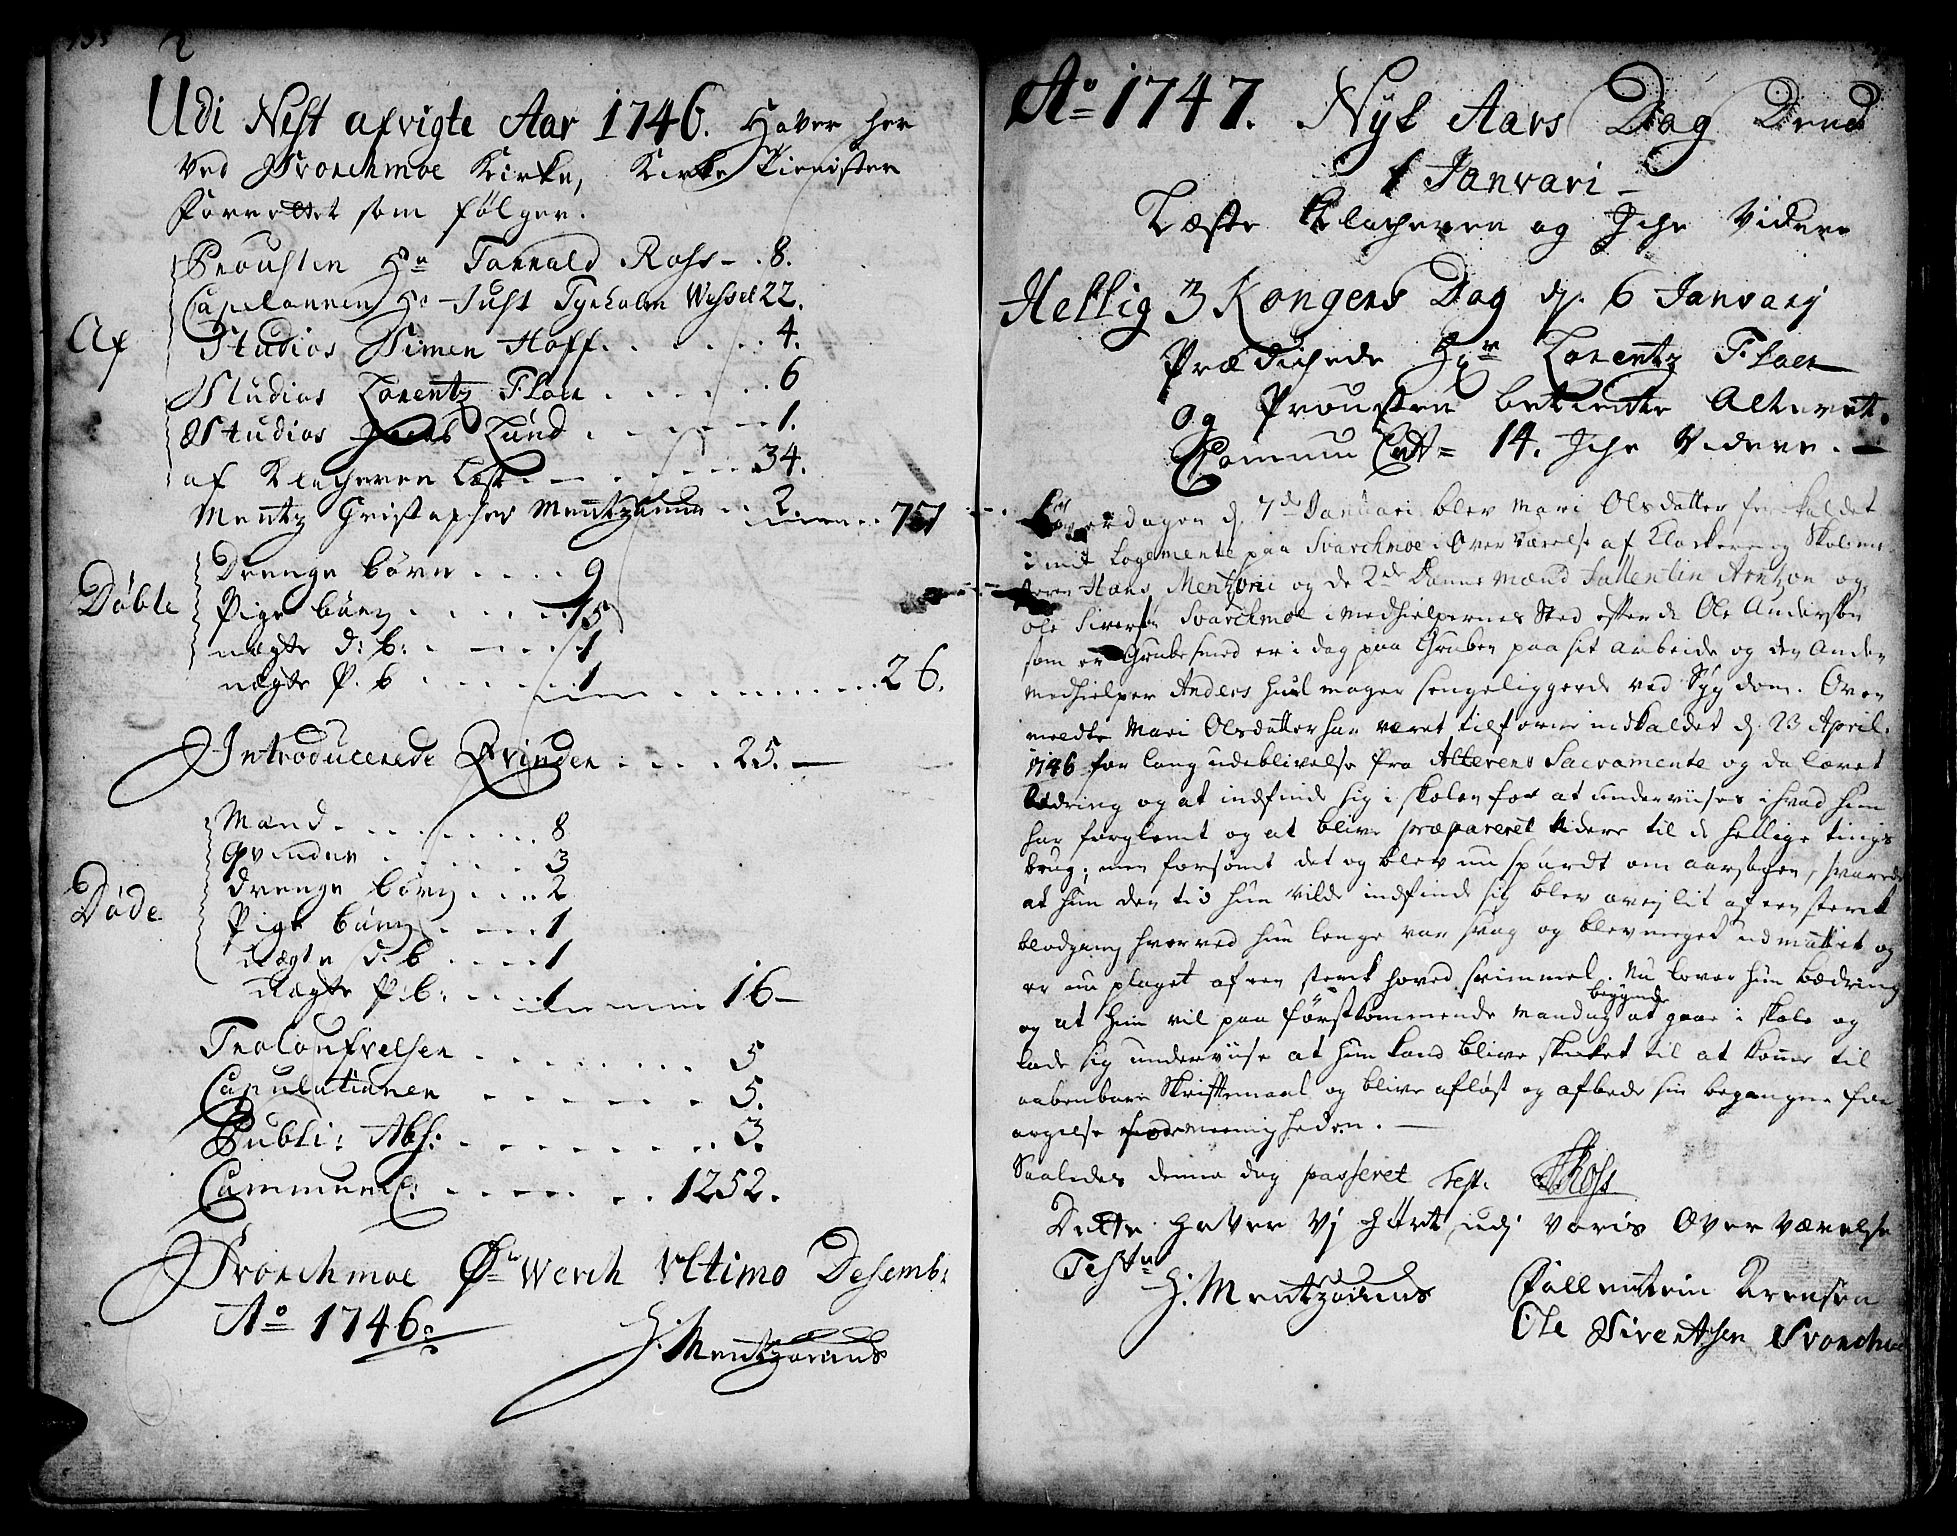 Udi Nest afvigte Aar 1746. Haver her
ved Svorchmoe Kirke, Kirke Tienisten
Forrettet som følger.
Af
Prousten Hr Tarrald Ross - . 8.
Capelanen Hr Just Tyrholm Wessel 22.
Studios Simen Hoff . . . . . . 4.
Studios Lorentz Floer . . . . . . 6
Studios Lund . . . . . . 1.
af Klocheren Læst . - . . . . 34.
Mentz Gristopher Mentzonius . . 2. . . 77
Døbte
Drenge børn . . . . 9
Pige børn . . . . . 15
uægte d: b: . . . . 1
uægte P. b . . . . . 1 . . . . . . 26.
Introducerede Qvinder . . . . 25. -
Døde
Mænd . . . . . . . 8
Qvinder . . . . . . 3
drenge børn . . . 2
Pige børn . . . . 1
uægte d. b . . . . 1
uægte P: b: . . . 1 16 -
Trolovelser . . . . . . . 5
Capulationer . . . . . . 5.
Publi: Abs: . . . . . . . 3.
Communic: . . . . . . 1252.
Svorchmoe Werch Ultimo Desemb:
Ao 1746.
H. Mentzonius
Ao 1747. Nyt Aars Dag Dend
1 Janvari -
Læste Klocheren og Iche Videre
Hellig 3 Kongers Dag d. 6 Janvarj
Prædichede Hr Lorentz Floer
og Prousten betiente Alteret.
Commu Cat= 14. Iche Videre. -
Løverdagen d. 7de Januari blev Mari Olsdatter fremkaldet
i mit Logemente paa Svorchmoe i Overværelse af Klockeren og Skolemester
Hans Mentzoni og de 2de Danne Mænd Fallentin Arntzon og
Ole Siversøn Svorchmoe i Medhielpernes Sted efterdi Ole Andersøn
som er Grubesmed er i dag paa Gruben paa sit arbeide og den Anden
Medhielper Anders Huulmager sengeliggende ved Sygdom. Oven
meldte Mari Olsdatter har været tilforne indkaldet d. 23 April.
1746 for lang udeblivelse fra Alterens Sacramente og da lovet
bædring og at indfinde sig i skolen for at underviises i hvad hun
har forglemt og at blive præpareret videre til de hellige tings
brug; men forsømt det og blev nu spurdt om aarsagen, svarede
at hun den tid hun vilde indfinde sig blev af een sterk
blodgang hvorved hun lenge var svag og blev meget udmattet og
er nu plaget af een sterk hoved svimmel. Nu lover hun bædring
og at hun vil paa førstkommende Mandag begynde at gaae i skole og
lade sig underviise at hun kand blive skicket til at komme til
aabenbare Skriftemaal og blive afløst og afbede sin begangne for
argelse for Meenigheden. -
Saaledes denne dag passeret Test. TRoss
Dette haver Vj hørt udj voris Overværelse
Teste
H. Mentzonius Fallentin Arensen
Ole Siverthsen Svorchmoe